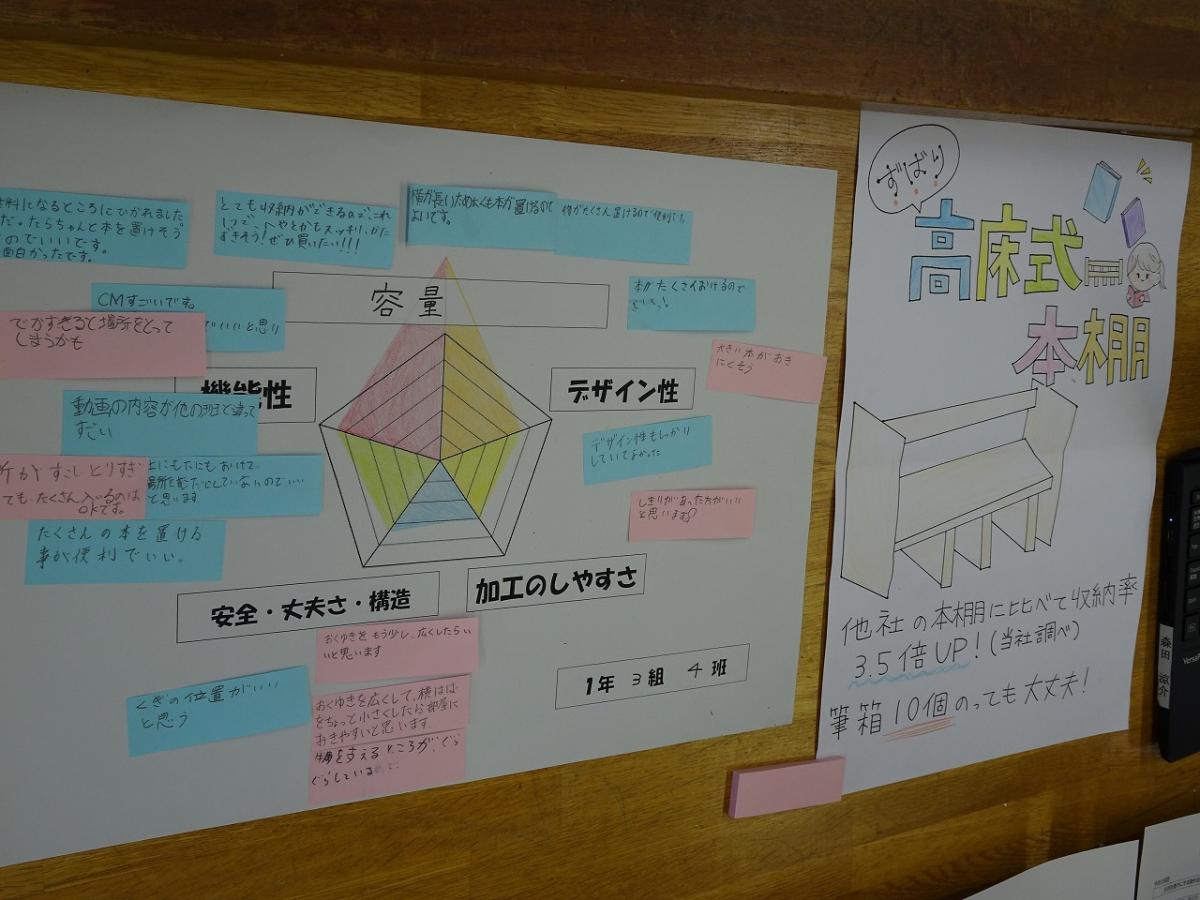 料になるところにひかれました
だ。たらちゃんと本を置けそう
のでいいです。
面白かったです。
とても収納ができるので、これ
1つで へやとかもスッキリ、かた
づきそう!ぜひ買いたい!!!
横が長いため太くも本が置けるので
よいです。
物がたくさん置けるので便利だ
CMすごいです。
いいと思い
でかすぎると場所をとって
しまうかも
容量
本がたくさんおけるので
大きい本がおき
にくそう
機能性
デザイン性
動画の内容が他の班と違って
すごい
デザイン性もしっかり
していてよかった
所がすこしとりすぎ
ても、たくさん入るのは
OKです。
上にもたにもおけて、
場所をむだにしていないのでいい
と思います
しきりがあった方がいい
と思います
たくさんの本を置ける
事が便利でいい。
安全・丈夫さ・構造
加工のしやすさ
おくゆきをもう少し、広くしたらい
いと思います
くぎの位置がいい
と思う
おくゆきを広くして、横はば
をちょっと小さくしたらお部屋に
おきやすいと思います。
を支えるところが、ぐら
ぐらしている
1年 3組 4班
ずばり
高床式
本棚
他社の本棚に比べて収納率
3.5倍UP!(当社調べ)
筆箱10個のっても大丈夫!
森田 涼介